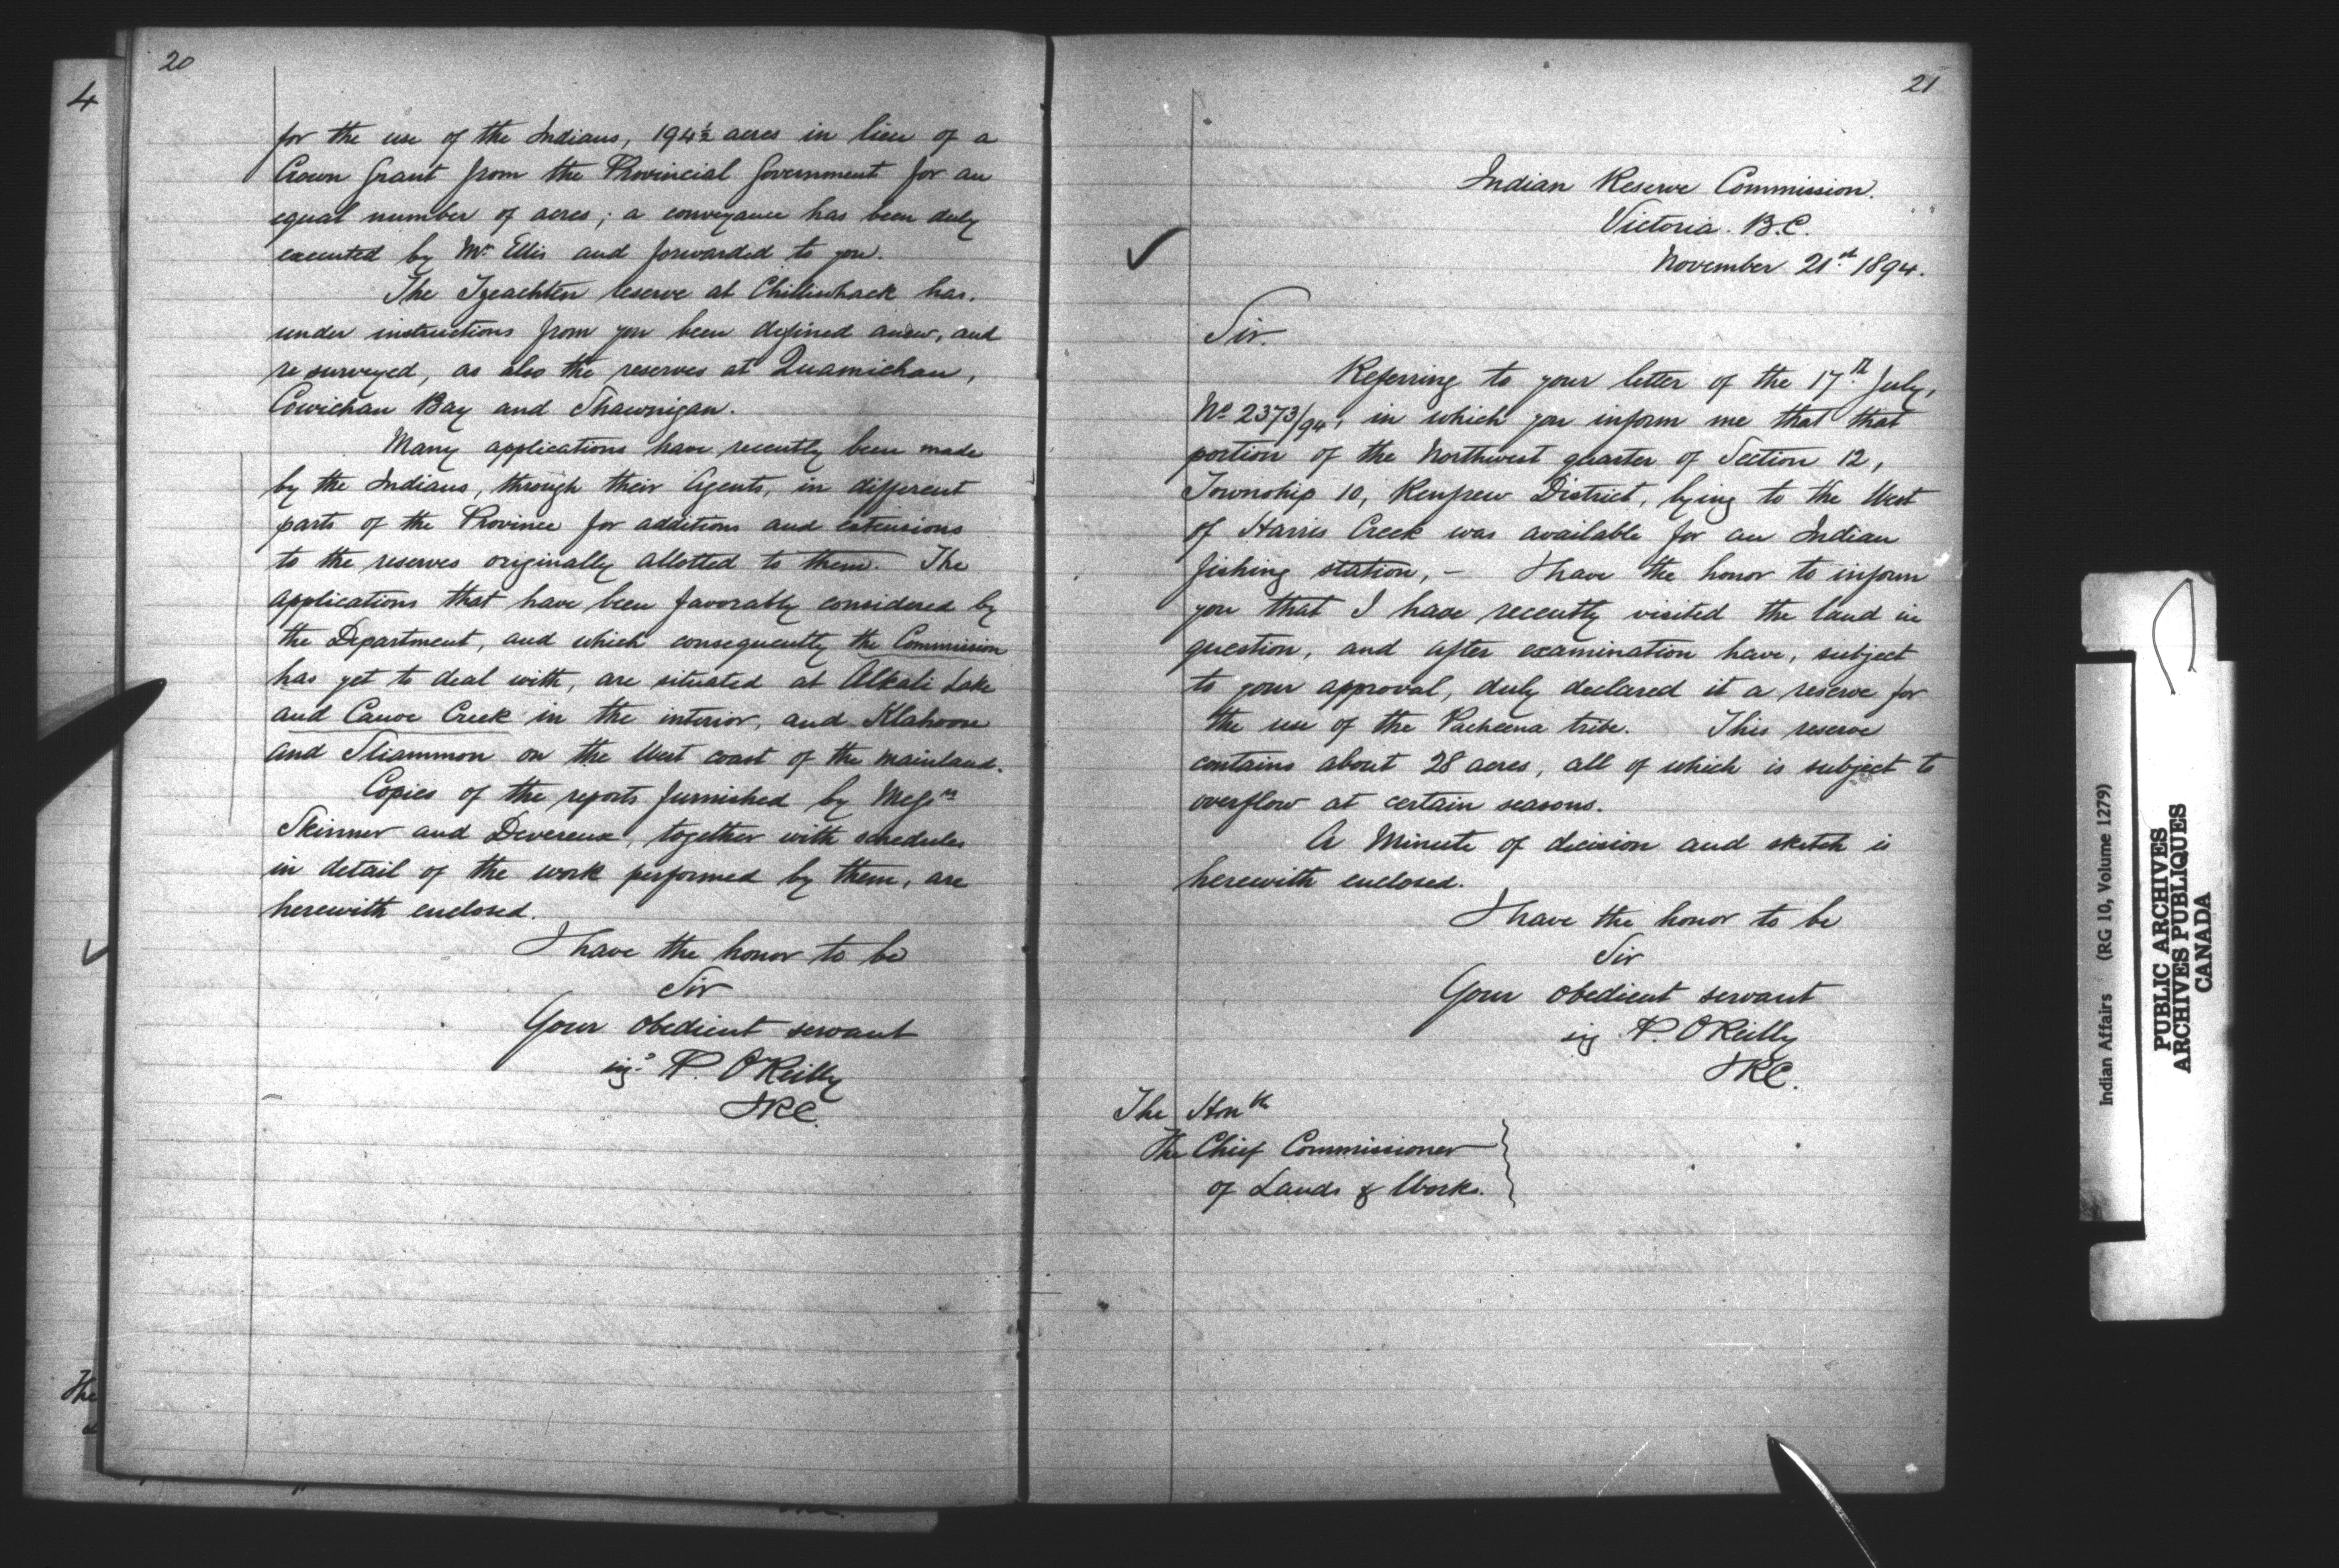 20
4
for the use of the Indians, 194½ acres in lieu of a
Crown Grant from the Provincial Government for an
equal number of acres; a conveyance has been duly
executed by Mr Ellis and forwarded to you.
The Tzeachten reserve at Chilliwhack has,
under instructions from you been defined anew, and
re surveyed, as also the reserves at Quamichan,
Cowichan Bay and Shawnigan.
Many applications have recently been made
by the Indians, through their Agents, in different
parts of the Province for additions and extensions
to the reserves originally allotted to them. The
applications that have been favorably considered by
the Department, and which consequently the Commission
has yet to deal with, are situated at Alkali Lake
and Canoe Creek in the interior, and Klahoose
and Sliammon on the West coast of the Mainland.
Copies of the reports furnished by Messrs
Skinner and Devereux, together with schedules
in detail of the work performed by them, are
herewith enclosed.
I have the honor to be
Sir
Your obedient servant
sigd P. O'Reilly
IRC.
The
21
Indian Reserve Commission.
Victoria. B.C.
November 21st 1894.
Sir.
Referring to your letter of the 17th July,
No 2373/94, in which you inform me that that
portion of the Northwest quarter of Section 12,
Township 10, Renfrew District, lying to the West
of Harris Creek was available for an Indian
fishing station, – I have the honor to inform
you that I have recently visited the land in
question, and after examination have, subject
to your approval, duly declared it a reserve for
the use of the Pacheena tribe. This reserve
contains about 28 acres, all of which is subject to
overflow at certain seasons.
A Minute of decision and sketch is
herewith enclosed.
I have the honor to be
Sir
Your obedient servant
sig P. O'Reilly
IRC.
The Honble
The Chief Commissioner
of Lands & Works.
Indian Affairs (RG 10, Volume 1279)
PUBLIC ARCHIVES
ARCHIVES PUBLIQUES
CANADA